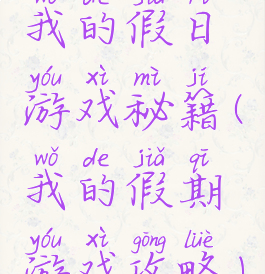 wǒ de jiǎ rì
我的假日
yóu xì mì jí
游戏秘籍(
wǒ de jiǎ qī
我的假期
yóu xì gōng lüè
游戏攻略)